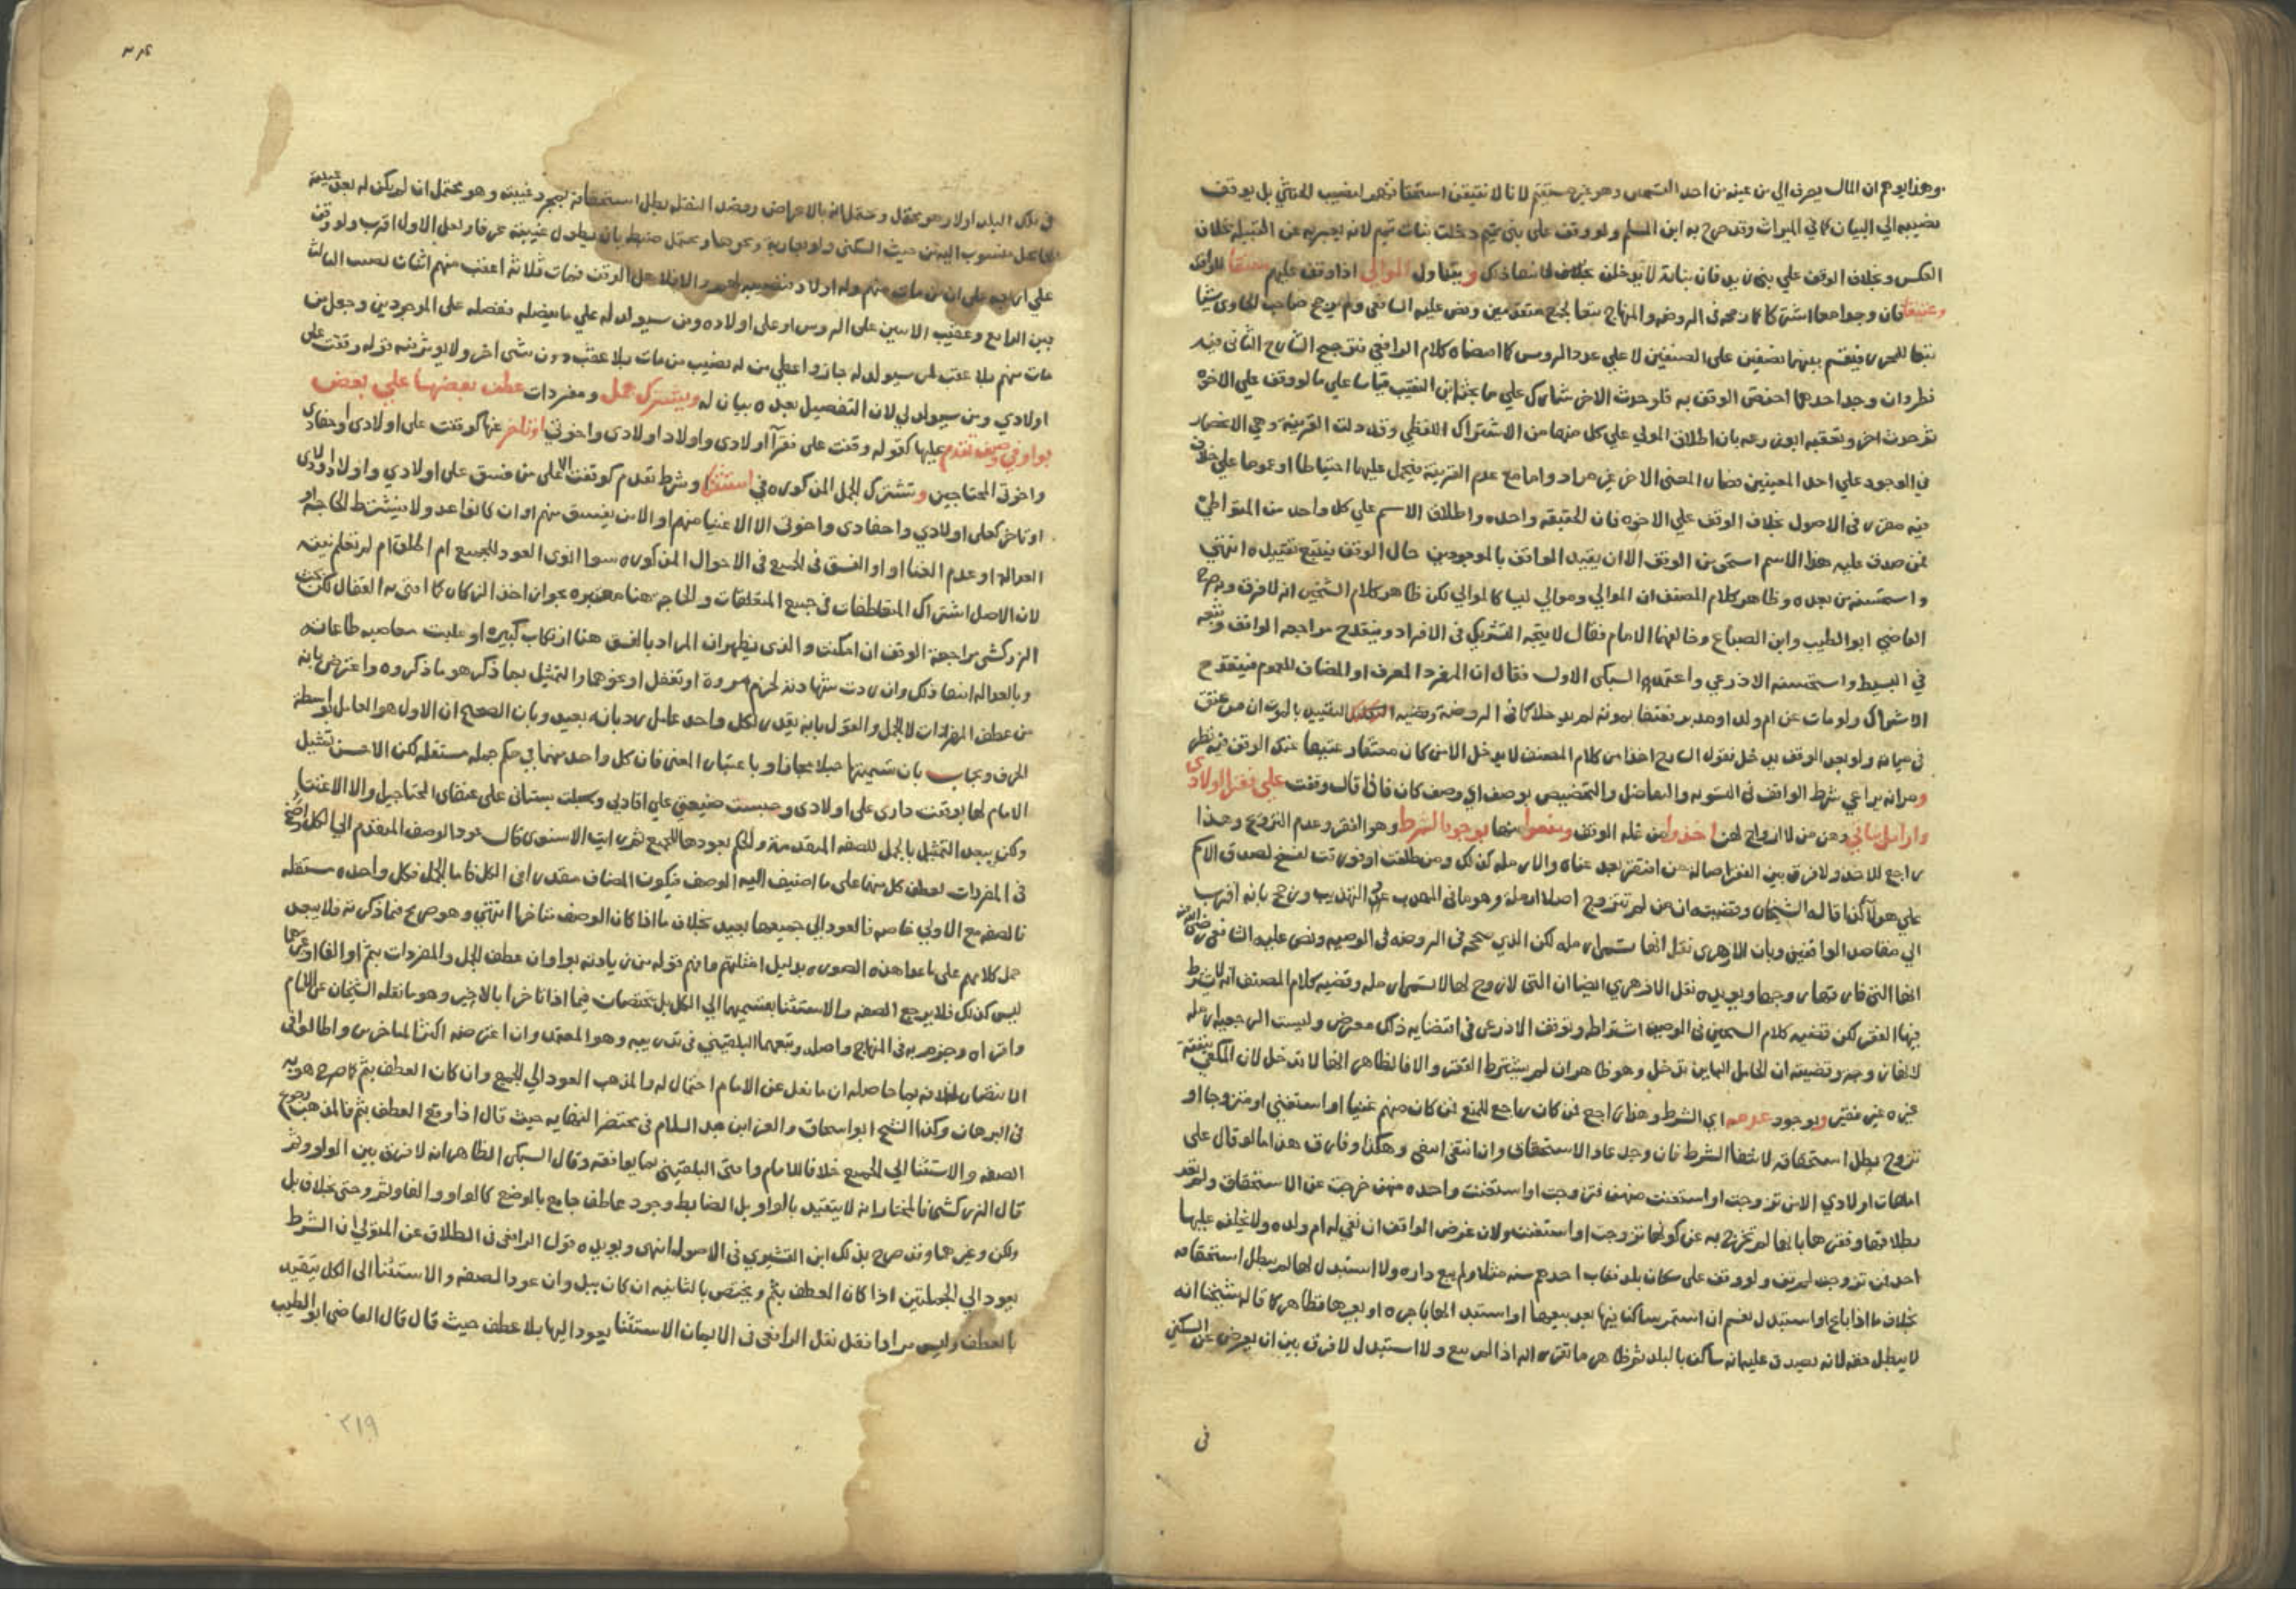 وهذا يوهم ان المال يصرف الي من عينه من احد القسمين وهو غير مستقيم لانا لا نتيقن استحقاقهم لنصيب الخنثي بل يوقف
نصيبه الي البيان كما في الميراث وقد صرح به ابن المسلم ولو وقف على بني تميم دخلت بنات تميم لانه يعبر به عن القبيلة بخلاف
العكس وبخلاف الوقف علي بني زيد فان بناته لا يدخلن بخلاف لانتفا ذلك ويتناول الموالي اذا وقف عليهم معتقا للواقف
وعتيقا فان وجدا معا اشتركا كما صححه في الروضه والمنهاج تبعا لجمع متقدمين ونص عليه الشافعي ولم يرجح صاحب الحاوي شيئا
تبعا للمحرر فيقسم بينهما نصفين على الصنفين لا علي عدد الروس كما اقتضاه كلام الرافعي ثم رجح الشارح الثاني فيه
نظر وان وجد احدهما اختص الوقف به فلو حدث الاخر شاركه علي ما بحثه ابن النقيب قياسا علي ما لو وقف علي الاخوة
ثم حدث اخر وتعقبه ابو زرعه بان اطلاق المولي علي كل منهما من الاشتراك اللفظي وقد دلت القرينة وهي الانحصار
في الوجود علي احد المعنيين فصار المعني الاخر غير مراد واما مع عدم القرينة فيحمل عليهما احتياطا او عموما علي خلاف
فيه مقرر في الاصول بخلاف الوقف علي الاخوه فان الحقيقه واحده واطلاق الاسم علي كل واحد من المتواطئ
فمن صدق عليه هذا الاسم استحق من الوقف الا ان يقيد الواقف بالموجودين حال الوقف فيتبع تقييده انتهي
واستحسنه من بعده وظاهر كلام المصنف ان الموالي وموالي ليسا كالموالي لكن ظاهر كلام الشيخين انه لا فرق وبه صرح
القاضي ابو الطيب وابن الصباغ وخالفهما الامام فقال لا يتجه التشريك في الافراد وينقدح مراجعه الواقف وتبعه
في البسيط واستحسنه الاذرعي واعتمده السبكي الاول فقال ان المفرد المعرف او المضاف للعموم فينقدح
الاشتراك ولو مات عن ام ولد او مدبر فعتقا بموته لم يدخلا كما في الروضة وقضيه التعليل التقييد بالموت ان من عتق
في حياته ولو بعد الوقف يدخل فقول الشارح اخذا من كلام المصنف لا يدخل الا من كان معتقا وعتيقا عند الوقف فيه نظر
ومر انه يراعي شرط الواقف في التسويه والتفاضل والتخصيص بوصف اي وصف كان فاذا قال وقفت علي فقرا اولادي
وارامل بناتي وهن من لا ازواج لهن اخذوا من غله الوقف ومنعوا منها بوجود الشرط وهو الفقر وعدم التزوج وهذا
راجع للاخذ ولا فرق بين الفقر اصالة ومن افتقر بعد غناه والارمله كذلك ومن طلقت او فورقت بفسخ لصدق الاسم
علي هولا كذا قاله الشيخان وقضيته ان من لم تتزوج اصلا ارملة وهو ما في المهذب عن التهذيب ورجح بانه اقرب
الي مقاصد الواقفين وبان الازهري نقل انها تسمي ارمله لكن الذي صححه في الروضه في الوصيه ونص عليه الشافعي رضي الله عنه
انها التي فارقها زوجها ويويده نقل الازهري ايضا ان التي لا زوج لها لا تسمي ارمله وقضيه كلام المصنف انه لا يشترط
فيها الفقر لكن قضيه كلام الشيخين في الوصيه اشتراطه وتوقف الاذرعي في اقتضايه ذلك معترض وليست الرجعيه ارمله
وقضيته ان الحامل الباين تدخل وهو ظاهر ان لم يشترط الفقر والا فالظاهر انها لا تدخل لان المكفي بنفقة
غيره غير فقير وبوجود عدمه اي الشرط وهذا راجع للمنع فمن كان منهم غنيا او استغني او متزوجا او
تزوج بطل استحقاقه لانتفا الشرط فان وجد عاد الاستحقاق وان انتفي انتفي وهكذا وفارق هذا ما لو قال على
امهات اولادي الا من تزوجت او استغنت منهن فتزوجت او استغنت واحده منهن خرجت عن الاستحقاق ولم تعد
بطلاقها وفقرها بانها لم تخرج به عن كونها تزوجت او استغنت ولان غرض الواقف ان تفي له ام ولده ولا يخلفه عليها
احد فمن تزوجت لم تف ولو وقف علي سكان بلد فغاب احدهم سنه مثلا ولم يبع داره ولا استبدل لها لم يبطل استحقاقه
بخلاف ما اذا باع او استبدل نعم ان استمر ساكنا فيها بعد بيعها او استبدلها باجره او بغيرها فظاهر كما قاله شيخنا انه
لا يبطل حقه لانه يصدق عليه انه ساكن بالبلد ثم ظاهر ما تقرر انه اذا لم يبع ولا استبدل لا فرق بين ان يعرض عن السكني
في
في تلك البلد اولا وهو محتمل ويحتمل انه بالاعراض وقصد النقله يبطل استحقاقه بمجرد غيبته وهو محتمل ان لم يكن له بعد غيبته
منسوب اليه من حيث السكنى ولو بعارية ونحوها ويحتمل ضبطه بان تطول غيبته عرفا ولعل الاول اقرب ولو وقف
علي اولاده علي ان من مات منهم وله اولاد فنصيبه لهم والا فلاهل الوقف فمات ثلاثة اعقب منهم اثنان نصيب الثالث
بين الرابع وعقب الاثنين علي الروس او علي اولاده ومن سيولد له علي ما يفصله ففصله على الموجودين وجعل من
مات منهم بلا عقب لمن سيولد له جاز واعطي من له نصيب من مات بلا عقب دون شي اخر ولا يوثر فيه قوله وقفت على
اولادي ومن سيولد لي لان التفصيل بعده بيان له ويشترك جمل ومفردات عطف بعضها علي بعض
بواو في وصف تقدم عليها كقوله وقفت على فقرا اولادى واولاد اولادى واخوتي او تاخر عنها كوقفت على اولادى واحفادي
واخوتي المحتاجين وتشترك الجمل المذكوره في استثنا وشرط تقدم كوقفت الا على من فسق على اولادي واولاد اولادي
او تاخر كعلى اولادي واحفادى واخوتى الا الاغنيا منهم او الا من يفسق منهم او ان كانوا عدولا فيشترط الحاجة او
العداله او عدم الغنا او او الفسق في الجميع في الاحوال المذكوره سوا انوى العود للجميع ام اطلق ام لم تعلم نيته
لان الاصل اشتراك المتعاطفات في جميع المتعلقات والحاجه هنا معتبره بجواز اخذ الزكاه كما افتى به القفال لكن بحث
الزركشي مراجعة الوقف ان امكنت والذى يظهر ان المراد بالفسق هنا ارتكاب كبيره او غلبت معاصيه طاعاته
وبالعداله انتفا ذلك وان ردت شهادته لخرم مروة او تغفل او نحوهما والتمثيل بما ذكر هو ما ذكروه واعترض بانه
من عطف المفردات لا الجمل والقول بانه يقدر لكل واحد عامل رد بانه بعيد وبان الصحيح ان الاول هو العامل بواسطة
الحرف ويجاب بان تسميتها جملا مجازا وباعتبار المعنى فان كل واحد منها في حكم جمله مستقله لكن الاحسن تمثيل
الامام لها بوقفت دارى على اولادى وحبست ضيعتي علي اقاربي وسبلت بستاني على عتقاى المحتاجين او الا الاغنيا
ولكن يبعد التمثيل بالجمل للصفه المتقدمة والحكم بعودها للجميع ثم رايت الاسنوى قال عود الوصف المتقدم الي الكل واضح
في المفردات لعطف كل منها على ما اضيف اليه الوصف فيكون المضاف مقدرا في الكل واما الجمل فكل واحده مستقله
فالصفه مع الاولي خاصه فالعود الي جميعها بعيد بخلاف ما اذا كان الوصف متاخرا انتهي وهو صريح فيما ذكرته فلا يبعد
حمل كلامهم على ما عدا هذه الصوره بدليل امثلتهم وافهم قوله من زيادته بواو ان عطف الجمل والمفردات بثم او الفا او غيرهما
ليس كذلك فلا يرجع الصفه والاستثنا بقسميهما الي الكل بل يختصان فيما اذا تاخرا بالاخير وهو ما نقله الشيخان عن الامام
واقراه وجزم به في المنهاج واصله وتبعهما البلقيني في تدريبه وهو المعتمد وان اعترضه اكثر المتاخرين واطالوا في
الانتصار لخلافه بما حاصله ان ما نقل عن الامام احتمال له والمذهب العود الي الجميع وان كان العطف بثم كما صرح هو به
في البرهان وكذا الشيخ ابو اسحاق والعز ابن عبد السلام في مختصر النهايه حيث قال اذا وقع العطف بثم فالمذهب رجوع
الصفه والاستثنا الي الجميع خلافا للامام وافتى البلقيني بما يوافقه وقال السبكي الظاهر انه لا فرق بين الواو وثم
قال الزركشي فالمختار انه لا يتقيد بالواو بل الضابط وجود عاطف جامع بالوضع كالواو والفا وثم وحتى بخلاف بل
ولكن وغيرهما وقد صرح بذلك ابن القشيري في الاصول انتهى ويويده قول الرافعي في الطلاق عن المتولي ان الشرط
يعود الي الجملتين اذا كان العطف بثم ويختص بالثانيه ان كان ببل وان عود الصفه والاستثنا الى الكل يتقيد
بالعطف وليس مرادا فقد نقل الرافعي في الايمان الاستثنا يعود اليها بلا عطف حيث قال قال القاضي ابو الطيب
٢١٩